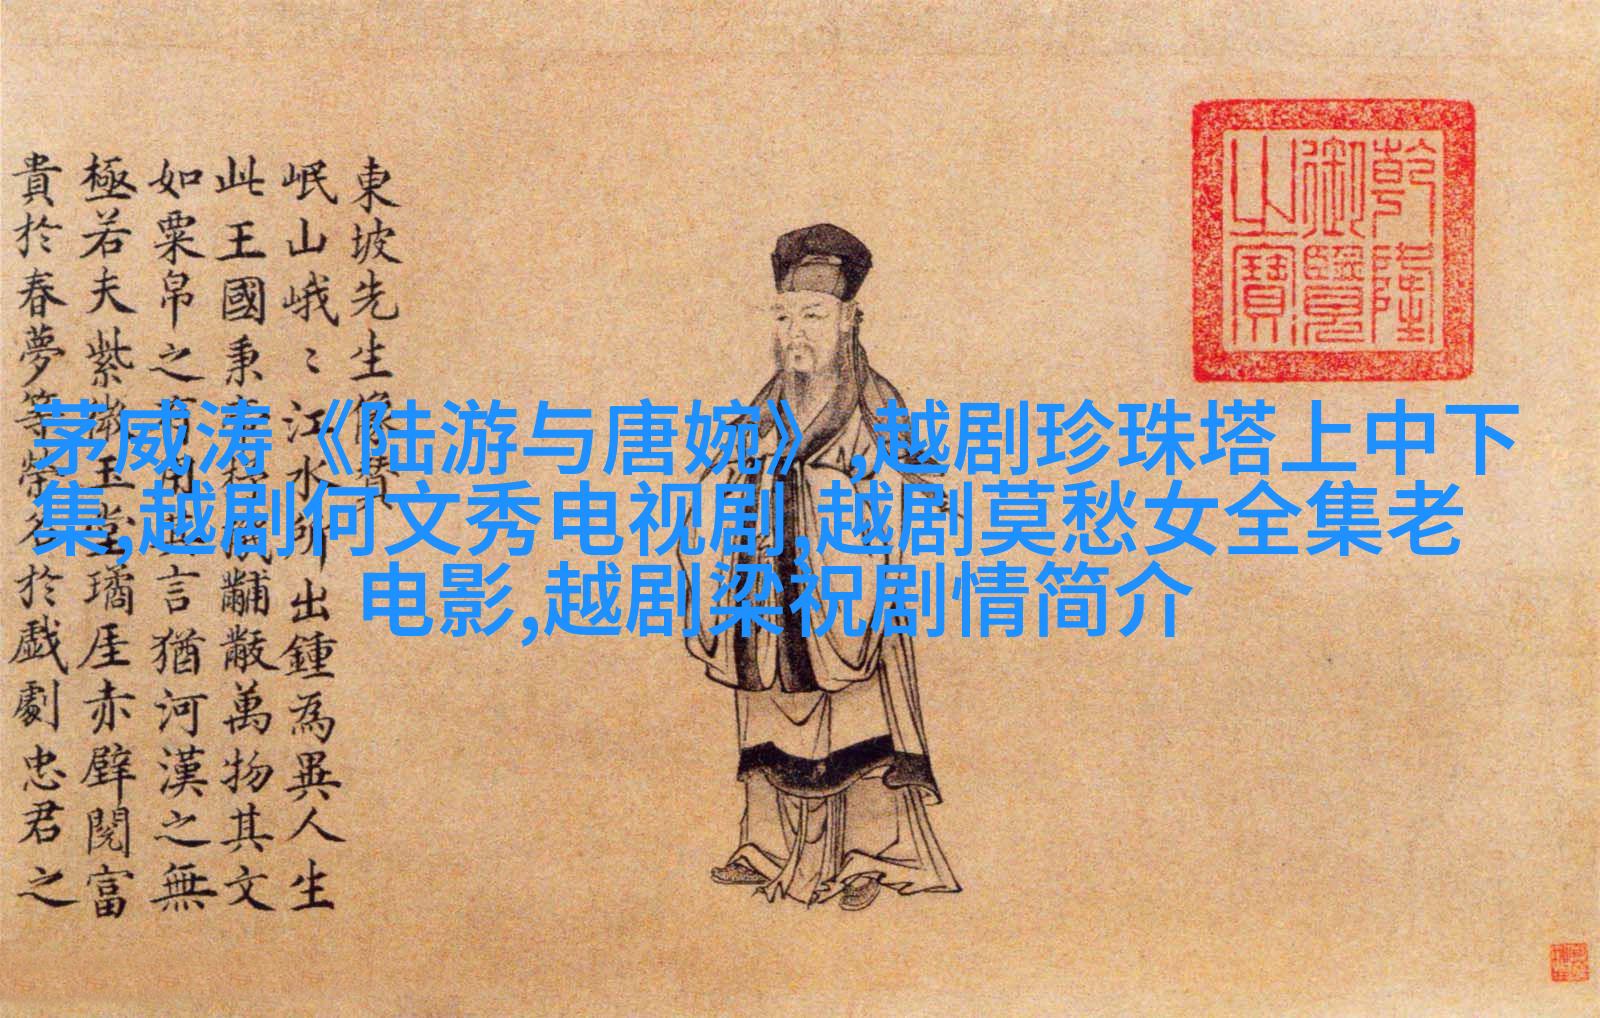 乾隆
御覽
之寶
東坡先生像贊
岷山峨〻江水所出鍾為異人生
此王國秉黼黻萬物其文
如粟帛之有用其言猶河漢之無
極若夫紫微玉堂璚厓赤壁閱富
貴於春夢等榮於戲劇忠君之
茅威涛《陆游与唐婉》,越剧珍珠塔上中下
集,越剧何文秀电视剧,越剧莫愁女全集老
电影,越剧梁祝剧情简介